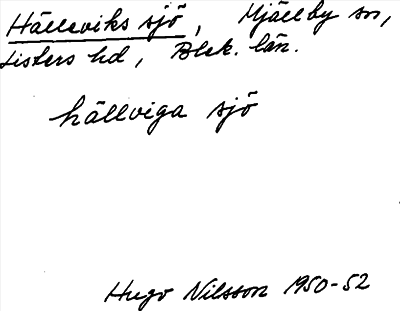 Hälleviks sjö, Mjällby sn,
Listers hd, Blek. län.
hällviga sjö
Hugo Nilsson 1950-52